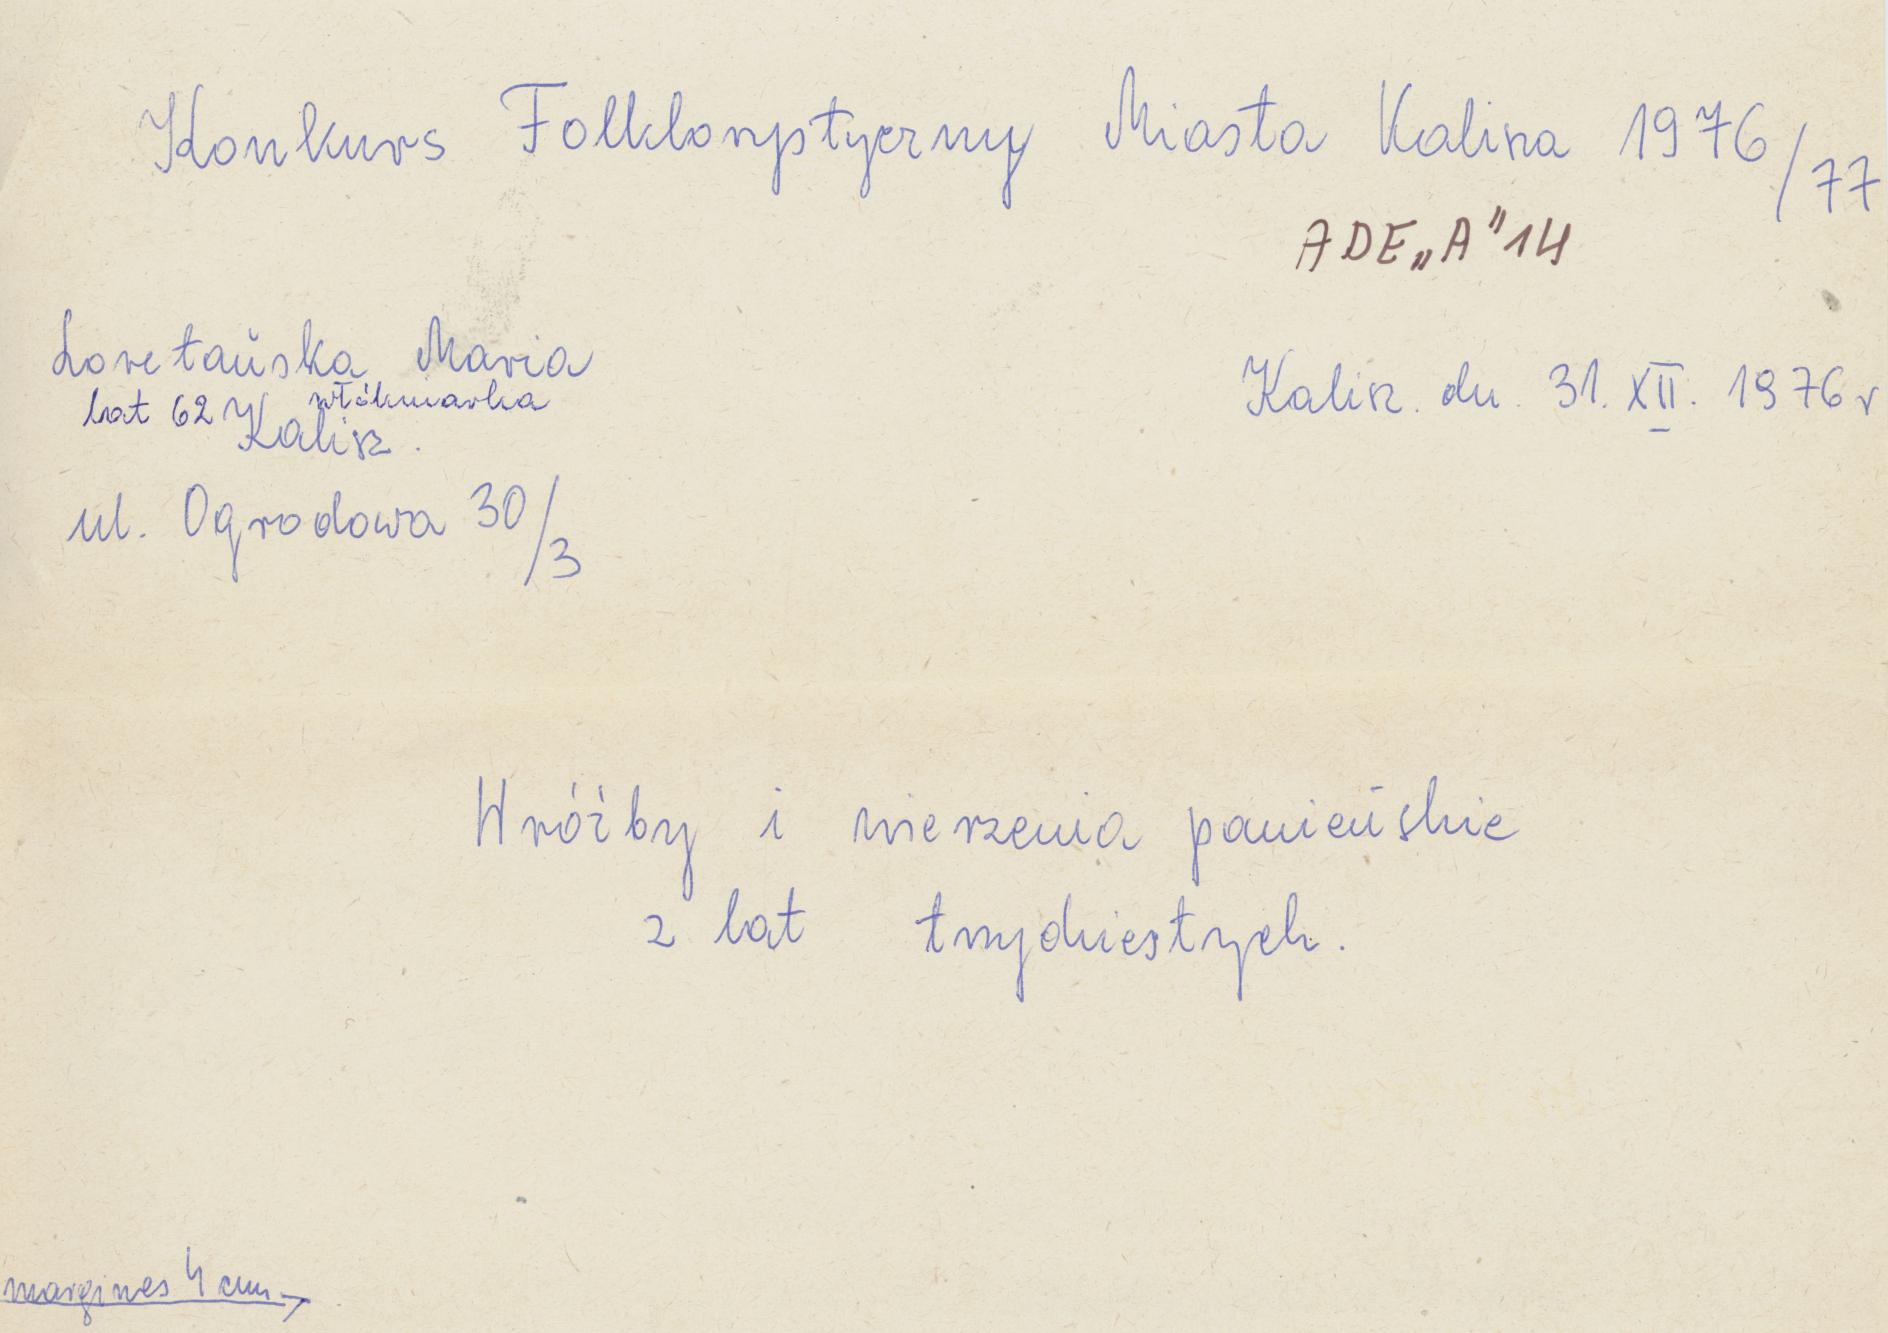 Konkurs Folklorystyczny Miasta Kalisza 1976/77
ADE „A" 14
Loretańska Maria
lat 62 włókniarka
Kalisz.
Kalisz. dn. 31. XII. 1976 r
ul. Ogrodowa 30/3
Wróżby i wierzenia panieńskie
z lat trzydziestych.
margines 4 cm →